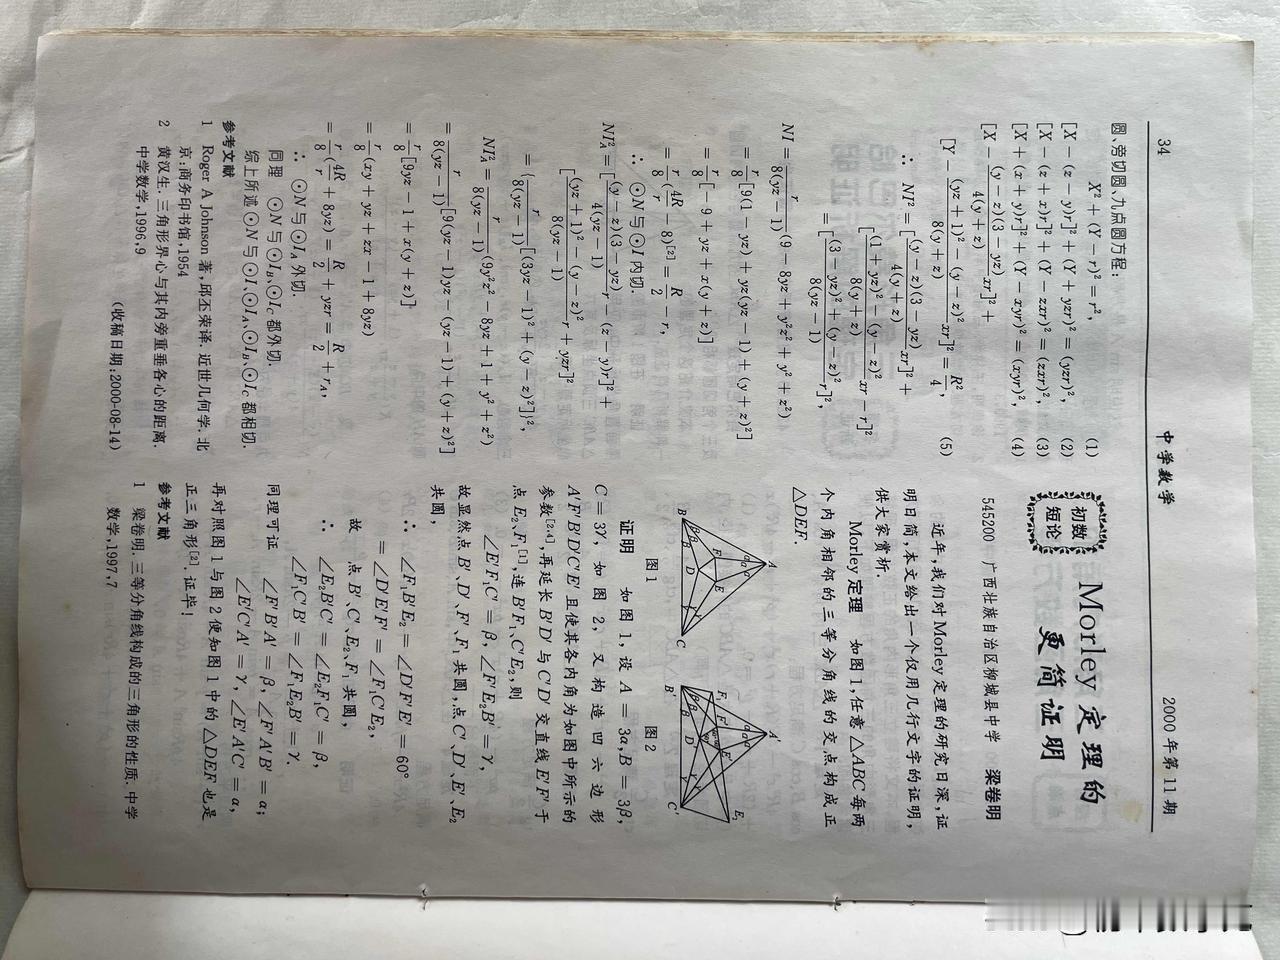 34
中学数学
2000年第11期
圆、旁切圆、九点圆方程:
X² + (Y − r)² = r², (1)
[X − (z − y)r]² + (Y + yzr)² = (yzr)², (2)
[X − (z + x)r]² + (Y − zxr)² = (zxr)², (3)
[X + (x + y)r]² + (Y − xyr)² = (xyr)², (4)
[X − (y − z)(3 − yz)/4(y + z) xr]² +
[Y − (yz + 1)² − (y − z)²/8(y + z) xr]² = R²/4, (5)
∴ NI² = [(y − z)(3 − yz)/4(y + z) xr]² +
[(1 + yz)² − (y − z)²/8(y + z) xr − r]²
= [(3 − yz)² + (y − z)²/8(yz − 1) r]²,
NI = r/8(yz − 1) (9 − 8yz + y²z² + y² + z²)
= r/8 [9(1 − yz) + yz(yz − 1) + (y + z)²]
= r/8 [− 9 + yz + x(y + z)]
= r/8 (4R/r − 8)[2] = R/2 − r,
∴ ⊙N 与⊙I 内切.
NI²_A = [(y − z)(3 − yz)/4(yz − 1) r − (z − y)r]² +
[(yz + 1)² − (y − z)²/8(yz − 1) r + yzr]²
= {r/8(yz − 1) [(3yz − 1)² + (y − z)²]}²,
NI²_A = r/8(yz − 1) (9y²z² − 8yz + 1 + y² + z²)
= r/8(yz − 1) [9(yz − 1)yz − (yz − 1) + (y + z)²]
= r/8 [9yz − 1 + x(y + z)]
= r/8 (xy + yz + zx − 1 + 8yz)
= r/8 (4R/r + 8yz) = R/2 + yzr = R/2 + r_A,
∴ ⊙N 与⊙I_A 外切.
同理 ⊙N 与⊙I_B、⊙I_C 都外切.
综上所述⊙N 与⊙I、⊙I_A、⊙I_B、⊙I_C 都相切.
参考文献
1 Roger A Johnson 著,邱丕荣译. 近世几何学. 北
京:商务印书馆,1954
2 黄汉生. 三角形界心与其内旁重垂各心的距离.
中学数学,1996,9
(收稿日期:2000-08-14)
初数
短论
Morley 定理的
更简证明
545200 广西壮族自治区柳城县中学 梁卷明
近年,我们对Morley定理的研究日深,证
明日简,本文给出一个仅用几行文字的证明,
供大家赏析.
Morley 定理 如图1,任意△ABC 每两
个内角相邻的三等分角线的交点构成正
△DEF.
图1
图2
证明 如图1,设 A = 3α,B = 3β,
C = 3γ,如图2,又构造凹六边形
A′F′B′D′C′E′且使其各内角为如图中所示的
参数[2,4],再延长B′D′与C′D′交直线E′F′于
点E₂、F₁[1],连B′F₁、C′E₂,则
∠E′F₁C′ = β,∠F′E₂B′ = γ,
故显然点B′、D′、F′、F₁共圆,点C′、D′、E′、E₂
共圆,
∴ ∠F₁B′E₂ = ∠D′F′E′ = 60°
= ∠D′E′F′ = ∠F₁C′E₂,
故 点B′、C′、E₂、F₁共圆,
∴ ∠E₂B′C′ = ∠E₂F₁C′ = β,
∠F₁C′B′ = ∠F₁E₂B′ = γ.
同理可证 ∠F′B′A′ = β,∠F′A′B′ = α;
∠E′C′A′ = γ,∠E′A′C′ = α,
再对照图1与图2便知图1中的△DEF也是
正三角形[2]. 证毕!
参考文献
1 梁卷明. 三等分角线构成的三角形的性质. 中学
数学,1997,7